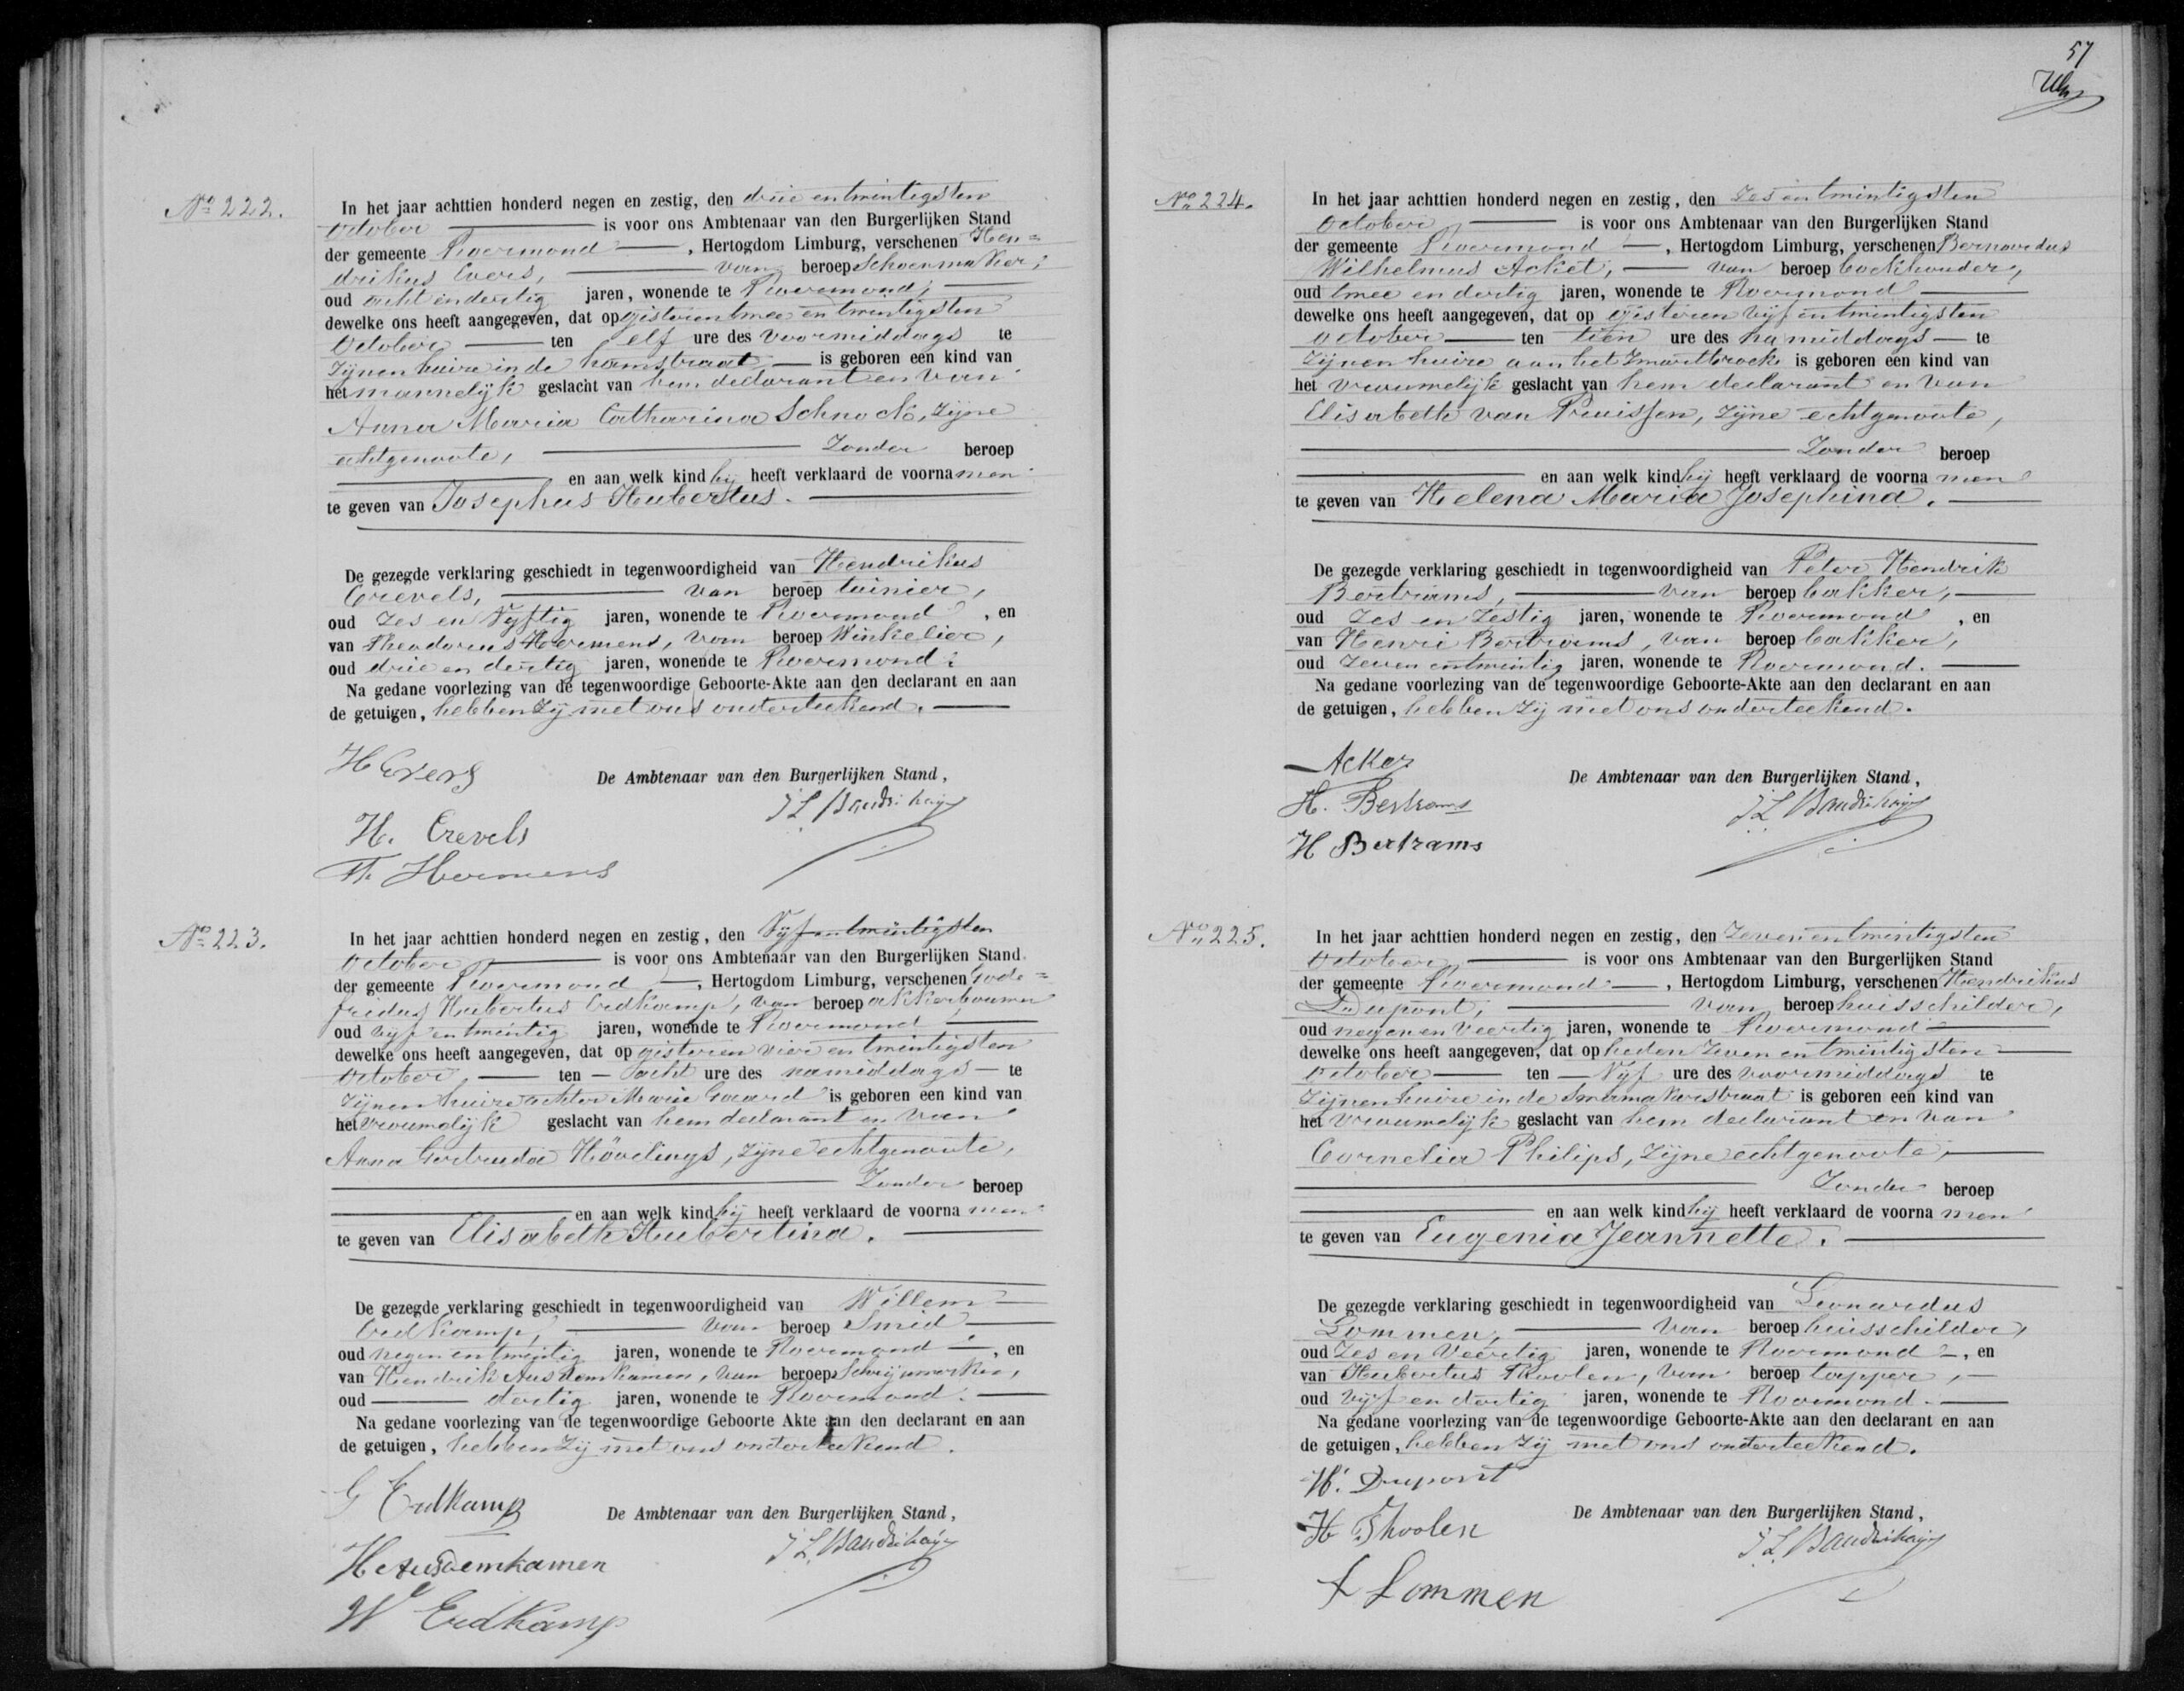 Nº 222.
In het jaar achttien honderd negen en zestig, den drie en twintigsten
October is voor ons Ambtenaar van den Burgerlijken Stand
der gemeente Roermond, Hertogdom Limburg, verschenen Hen=
drikus Evers, van beroep Schoenmaker,
oud acht en dertig jaren, wonende te Roermond,
dewelke ons heeft aangegeven, dat op gisteren twee en twintigsten
October ten elf ure des voormiddags te
Zijnen huize in de hamstraat is geboren een kind van
het mannelijk geslacht van hem declarant en van
Anna Maria Catharina Schnock, zijne
echtgenoote, Zonder beroep
en aan welk kind hij heeft verklaard de voornamen
te geven van Josephus Hubertus.
De gezegde verklaring geschiedt in tegenwoordigheid van Hendrikus
Crevels, van beroep tuinier,
oud Zes en Vijftig jaren, wonende te Roermond, en
van Theodorus Hermens, van beroep Winkelier,
oud drie en dertig jaren, wonende te Roermond.
Na gedane voorlezing van de tegenwoordige Geboorte-Akte aan den declarant en aan
de getuigen, hebben zij met ons onderteekend.
H Evers
De Ambtenaar van den Burgerlijken Stand,
H. Crevels
Th. Hermens
Nº 223.
In het jaar achttien honderd negen en zestig, den Vijf en twintigsten
October is voor ons Ambtenaar van den Burgerlijken Stand
der gemeente Roermond, Hertogdom Limburg, verschenen Gode=
fridus Hubertus Erdkamp, van beroep akkerbouwer
oud vijf en twintig jaren, wonende te Roermond
dewelke ons heeft aangegeven, dat op gisteren vier en twintigsten
October, ten acht ure des namiddags te
Zijnen huize achter Marie Gaard is geboren een kind van
het vrouwelijk geslacht van hem declarant en van
Anna Gertruda Hövelings, zijne echtgenoote,
Zonder beroep
en aan welk kind hij heeft verklaard de voornamen
te geven van Elisabeth Hubertina.
De gezegde verklaring geschiedt in tegenwoordigheid van Willem
Erdkamp, van beroep Smid
oud negen en twintig jaren, wonende te Roermond, en
van Hendrik Ausdemkamen, van beroep Schrijnwerker,
oud dertig jaren, wonende te Roermond.
Na gedane voorlezing van de tegenwoordige Geboorte Akte aan den declarant en aan
de getuigen, hebben Zij met ons onderteekend.
G Erdkamp
De Ambtenaar van den Burgerlijken Stand,
H Ausdemkamen
W Erdkamp
57
Nº 224.
In het jaar achttien honderd negen en zestig, den Zes en twintigsten
October is voor ons Ambtenaar van den Burgerlijken Stand
der gemeente Roermond, Hertogdom Limburg, verschenen Bernardus
Wilhelmus Acket, van beroep boekhouder,
oud twee en dertig jaren, wonende te Roermond
dewelke ons heeft aangegeven, dat op gisteren vijf en twintigsten
October ten tien ure des namiddags te
Zijnen huize aan het Zwartbroek is geboren een kind van
het vrouwelijk geslacht van hem declarant en van
Elisabeth van Pruissen, zijne echtgenoote,
Zonder beroep
en aan welk kind hij heeft verklaard de voornamen
te geven van Helena Maria Josephina.
De gezegde verklaring geschiedt in tegenwoordigheid van Peter Hendrik
Bertrams, van beroep bakker,
oud Zes en Zestig jaren, wonende te Roermond, en
van Henri Bertrams, van beroep bakker,
oud Zeven en twintig jaren, wonende te Roermond.
Na gedane voorlezing van de tegenwoordige Geboorte-Akte aan den declarant en aan
de getuigen, hebben zij met ons onderteekend.
De Ambtenaar van den Burgerlijken Stand,
H. Bertrams
H Bertrams
Nº 225.
In het jaar achttien honderd negen en zestig, den Zeven en twintigsten
October is voor ons Ambtenaar van den Burgerlijken Stand
der gemeente Roermond, Hertogdom Limburg, verschenen Hendrikus
Dupont, van beroep huisschilder,
oud negen en veertig jaren, wonende te Roermond
dewelke ons heeft aangegeven, dat op heden Zeven en twintigsten
October ten Vijf ure des voormiddags te
Zijnen huize in de Smermakerstraat is geboren een kind van
het vrouwelijk geslacht van hem declarant en van
Cornelia Philips, zijne echtgenoote,
Zonder beroep
en aan welk kind hij heeft verklaard de voornamen
te geven van Eugenia Jeannette.
De gezegde verklaring geschiedt in tegenwoordigheid van Leonardus
Lommen, van beroep huisschilder,
oud Zes en Veertig jaren, wonende te Roermond, en
van Hubertus Thoolen, van beroep tapper,
oud vijf en dertig jaren, wonende te Roermond.
Na gedane voorlezing van de tegenwoordige Geboorte-Akte aan den declarant en aan
de getuigen, hebben zij met ons onderteekend.
H. Dupont
De Ambtenaar van den Burgerlijken Stand,
H Thoolen
L Lommen